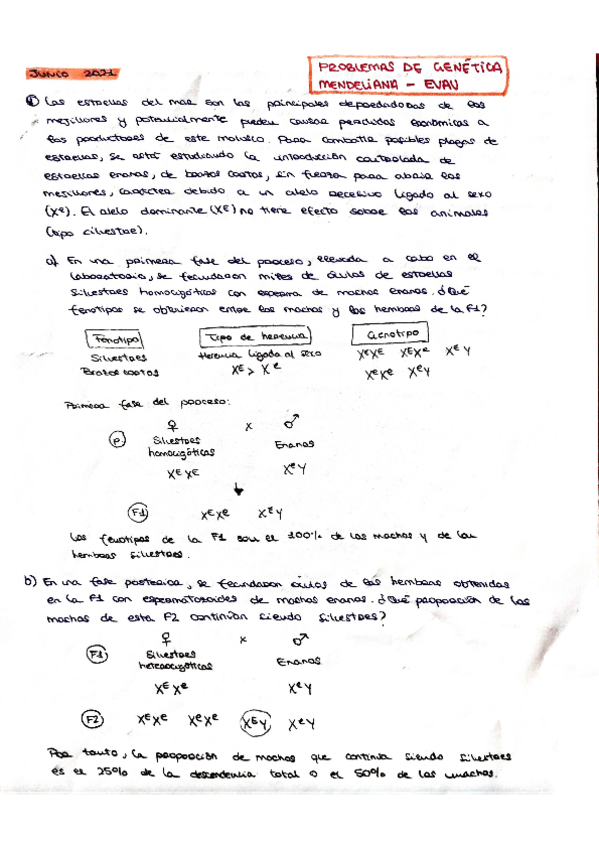 JUNIO 2021
PROBLEMAS DE GENÉTICA
MENDELIANA - EVAU
① Las estrellas del mar son las principales depredadoras de los
mejillones y potencialmente pueden causar perdidas económicas a
los productores de este molusco. Para combatir posibles plagas de
estrellas, se está estudiando la introducción controlada de
estrellas enanas, de brazos cortos, sin fuerza para abrir los
mejillones, carácter debido a un alelo recesivo ligado al sexo
(Xᵉ). El alelo dominante (Xᴱ) no tiene efecto sobre los animales
(tipo silvestre).
a) En una primera fase del proceso, llevada a cabo en el
laboratorio, se fecundaron miles de óvulos de estrellas
silvestres homocigóticas con esperma de machos enanos. ¿Qué
fenotipos se obtuvieron entre los machos y las hembras de la F1?
Fenotipo Tipo de herencia Genotipo
Silvestres Herencia ligada al sexo XᴱXᴱ XᴱXᵉ XᴱY
Brazos cortos Xᴱ > Xᵉ XᵉXᵉ XᵉY
Primera fase del proceso:
♀ x ♂
P Silvestres Enanos
homocigóticas
XᴱXᴱ XᵉY
F1 XᴱXᵉ XᴱY
Los fenotipos de la F1 son el 100% de los machos y de las
hembras silvestres.
b) En una fase posterior, se fecundaron óvulos de las hembras obtenidas
en la F1 con espermatozoides de machos enanos. ¿Qué proporción de los
machos de esta F2 continúan siendo silvestres?
♀ x ♂
F1 Silvestres Enanos
heterocigóticas
XᴱXᵉ XᵉY
F2 XᴱXᵉ XᵉXᵉ XᴱY XᵉY
Por tanto, la proporción de machos que continua siendo silvestres
es el 25% de la descendencia total o el 50% de los machos.